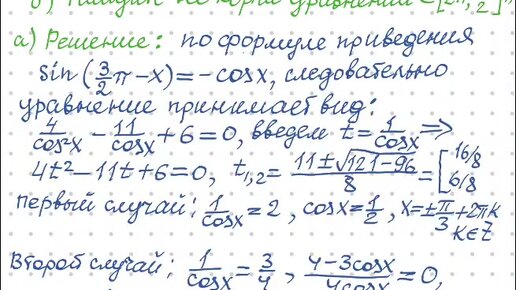 б) Найдите корни уравнения
а) Решение: по формуле приведения
sin(3/2 π - x) = -cosx, следовательно
уравнение принимает вид:
4/cos²x - 11/cosx + 6 = 0, введем t = 1/cosx ⇒
4t² - 11t + 6 = 0, t₁,₂ = (11 ± √(121-96))/8 = [16/8 6/8
первый случай: 1/cosx = 2, cosx = 1/2, x = ±π/3 + 2πk
k∈Z
Второй случай: 1/cosx = 3/4, (4-3cosx)/(4cosx) = 0,